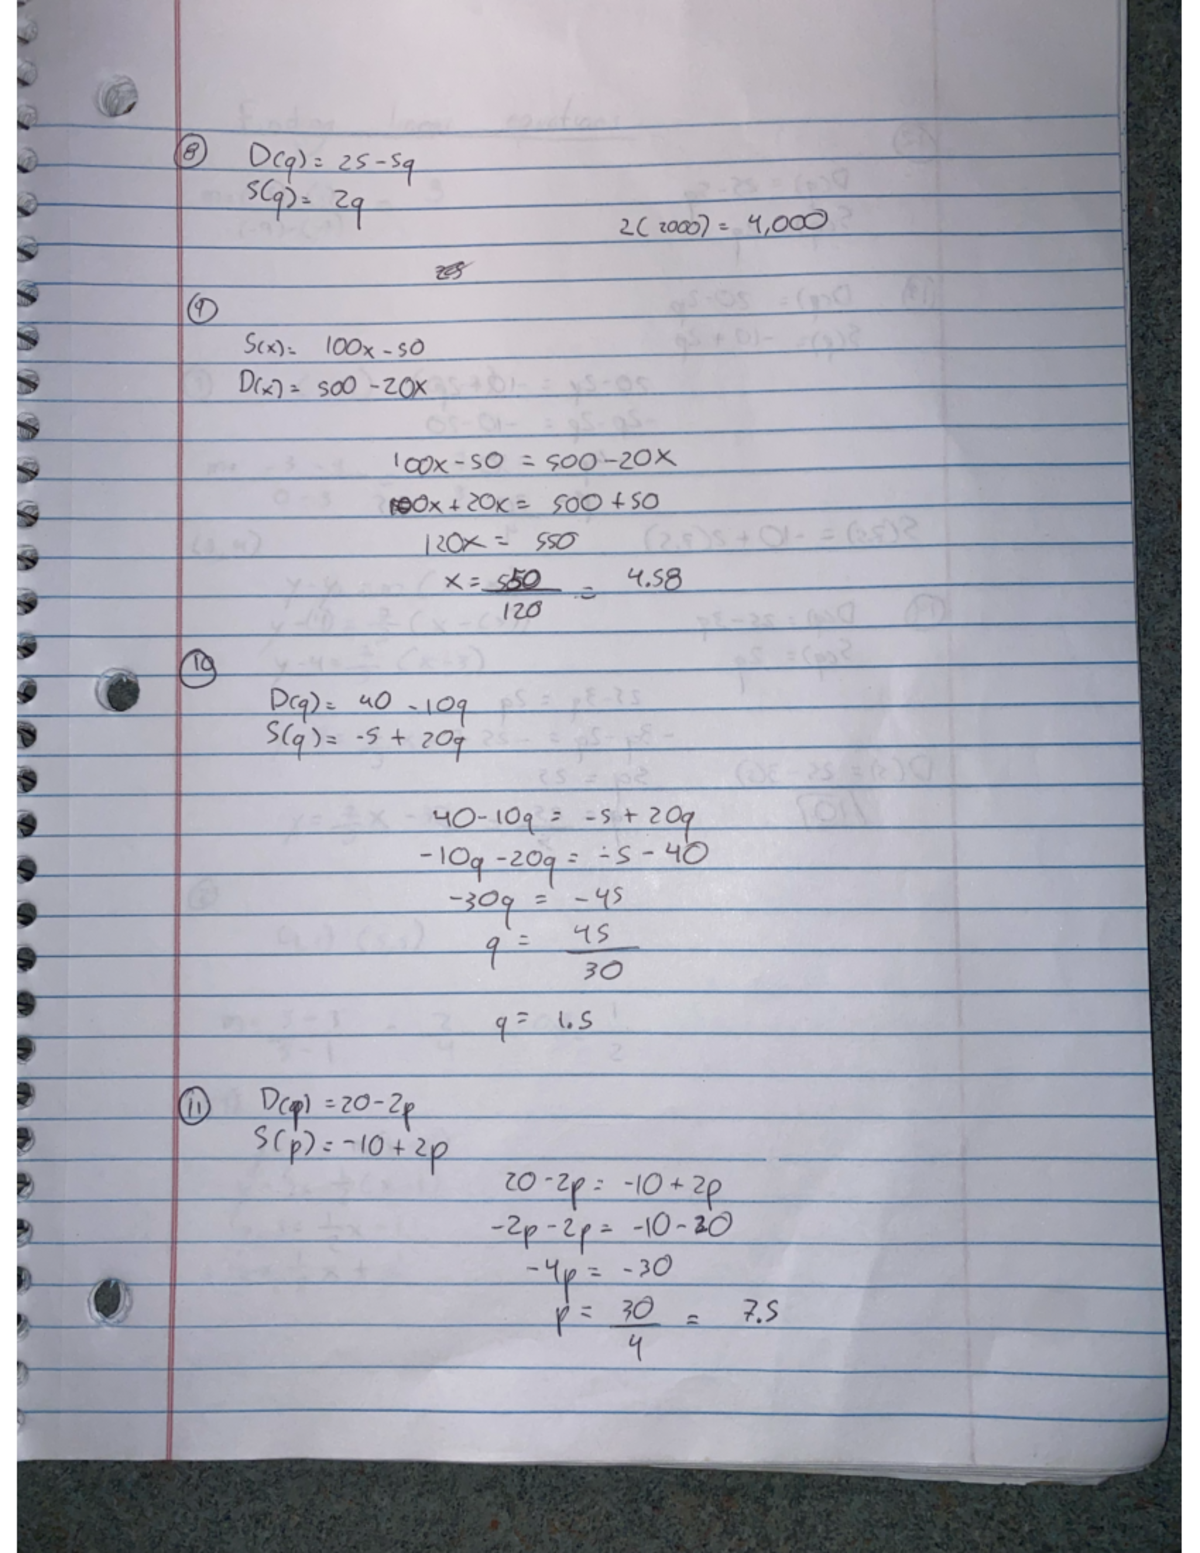 ⑧ D(q) = 25-5q
S(q) = 2q
2(2000) = 4,000
⑨
S(x) = 100x - 50
D(x) = 500 - 20x
100x - 50 = 500 - 20x
100x + 20x = 500 + 50
120x = 550
x = 550/120 = 4.58
⑩
D(q) = 40 - 10q
S(q) = -5 + 20q
40 - 10q = -5 + 20q
-10q - 20q = -5 - 40
-30q = -45
q = 45/30
q = 1.5
⑪ D(p) = 20 - 2p
S(p) = -10 + 2p
20 - 2p = -10 + 2p
-2p - 2p = -10 - 20
-4p = -30
p = 30/4 = 7.5